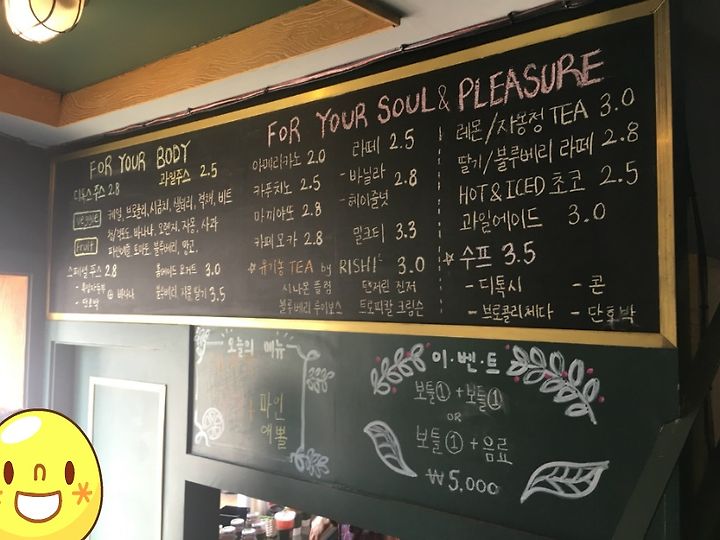 FOR YOUR BODY
디톡스주스 2.8 과일주스 2.5
Veggie 케일, 브로콜리, 시금치, 샐러리, 적채, 비트
fruit 청/적포도, 바나나, 오렌지, 자몽, 사과
파인애플, 토마토, 블루베리, 망고.
스페셜 주스 2.8 홈메이드 요거트 3.0
- 단호박 @ 바나나 블루베리, 자몽, 딸기 3.5
FOR YOUR SOUL & PLEASURE
아메리카노 2.0
카푸치노 2.5
마끼아또 2.8
카페모카 2.8
라떼 2.5
- 바닐라 2.8
- 헤이즐넛
밀크티 3.3
☆ 유기농 TEA by RISHI 3.0
시나몬 플럼 탠저린 진저
블루베리 루이보스 트로피칼 크림슨
레몬/자몽청 TEA 3.0
딸기/블루베리 라떼 2.8
HOT & ICED 초코 2.5
과일에이드 3.0
☆ 수프 3.5
- 디톡시 - 콘
- 브로콜리체다 - 단호박
오늘의 메뉴
파인
애플
이·벤·트
보틀① + 보틀①
OR
보틀① + 음료
₩5,000